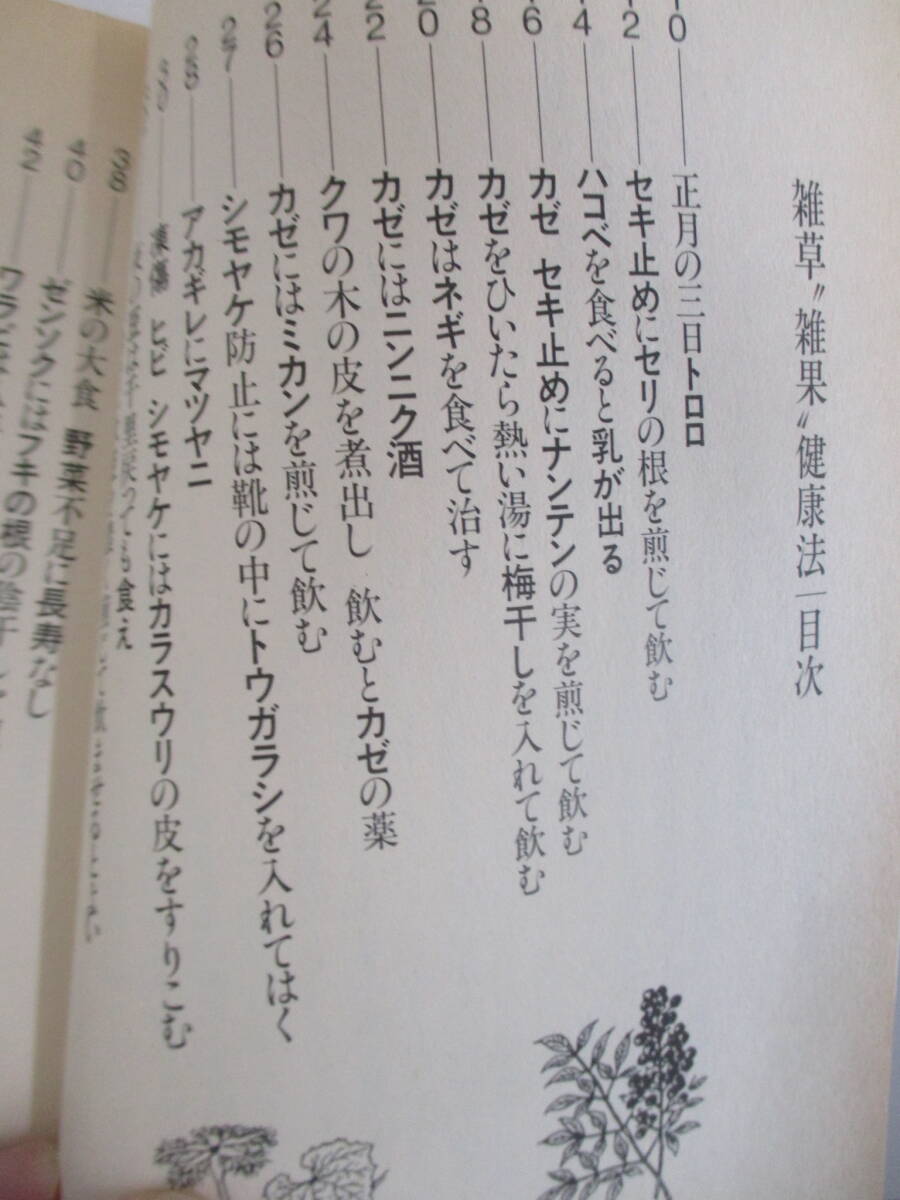 雑草〃雑果〃健康法―目次
10―正月の三日トロロ
12―セキ止めにセリの根を煎じて飲む
14―ハコベを食べると乳が出る
16―カゼ セキ止めにナンテンの実を煎じて飲む
18―カゼをひいたら熱い湯に梅干しを入れて飲む
20―カゼはネギを食べて治す
22―カゼにはニンニク酒
24―クワの木の皮を煮出し 飲むとカゼの薬
26―カゼにはミカンを煎じて飲む
27―シモヤケ防止には靴の中にトウガラシを入れてはく
28―アカギレにマツヤニ
30―凍傷 ヒビ シモヤケにはカラスウリの皮をすりこむ
ても食え
38―米の大食 野菜不足に長寿なし
40―ゼンソクにはフキの根の陰干し
42―ワラビ